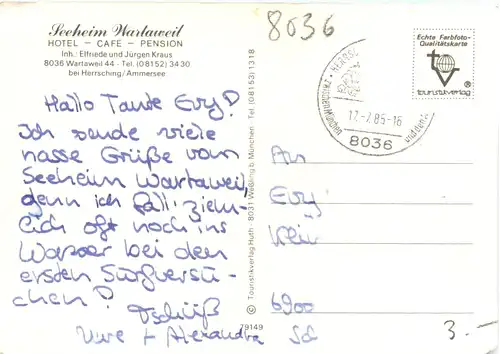 8036
Seeheim Wartaweil
HOTEL – CAFE – PENSION
Inh.: Elfriede und Jürgen Kraus
8036 Wartaweil 44 · Tel. (08152) 3430
bei Herrsching / Ammersee
Hallo Tante Evy!
Ich sende viele
nasse Grüße vom
Seeheim Wartaweil,
denn ich fall' ziem-
lich oft noch ins
Wasser bei den
ersten Surfversu-
chen!
Tschüß
Uwe + Alexandra
© Touristikverlag Huth · 8031 Weßling b. München · Tel. (08153) 1318
79149
17.-7.85-16
8036
Echte Farbfoto-
Qualitätskarte
tv
®
touristikverlag
An
Evy
Klix
6900
3.–